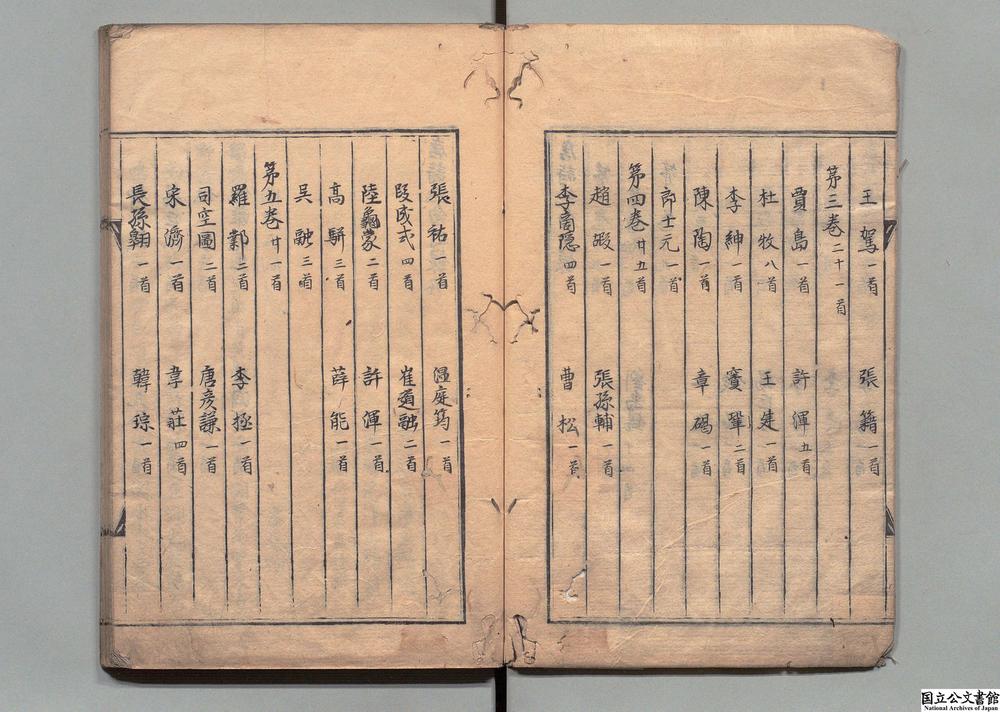 王駕一首 張籍一首
第三卷二十一首
賈島一首 許渾五首
杜牧八首 王建一首
李紳一首 竇鞏二首
陳陶一首 章碣一首
郎士元一首
第四卷廿五首
趙嘏一首 張孫輔一首
李商隐四首 曹松一首
張祐一首 温庭筠一首
段成式四首 崔道融二首
陸龜蒙二首 許渾一首
高駢三首 薛能一首
吳融三首
第五卷廿一首
羅鄴二首 李拯一首
司空圖二首 唐彦謙一首
宋濟一首 韋莊四首
長孫翱一首 韓琮一首
国立公文書館
National Archives of Japan